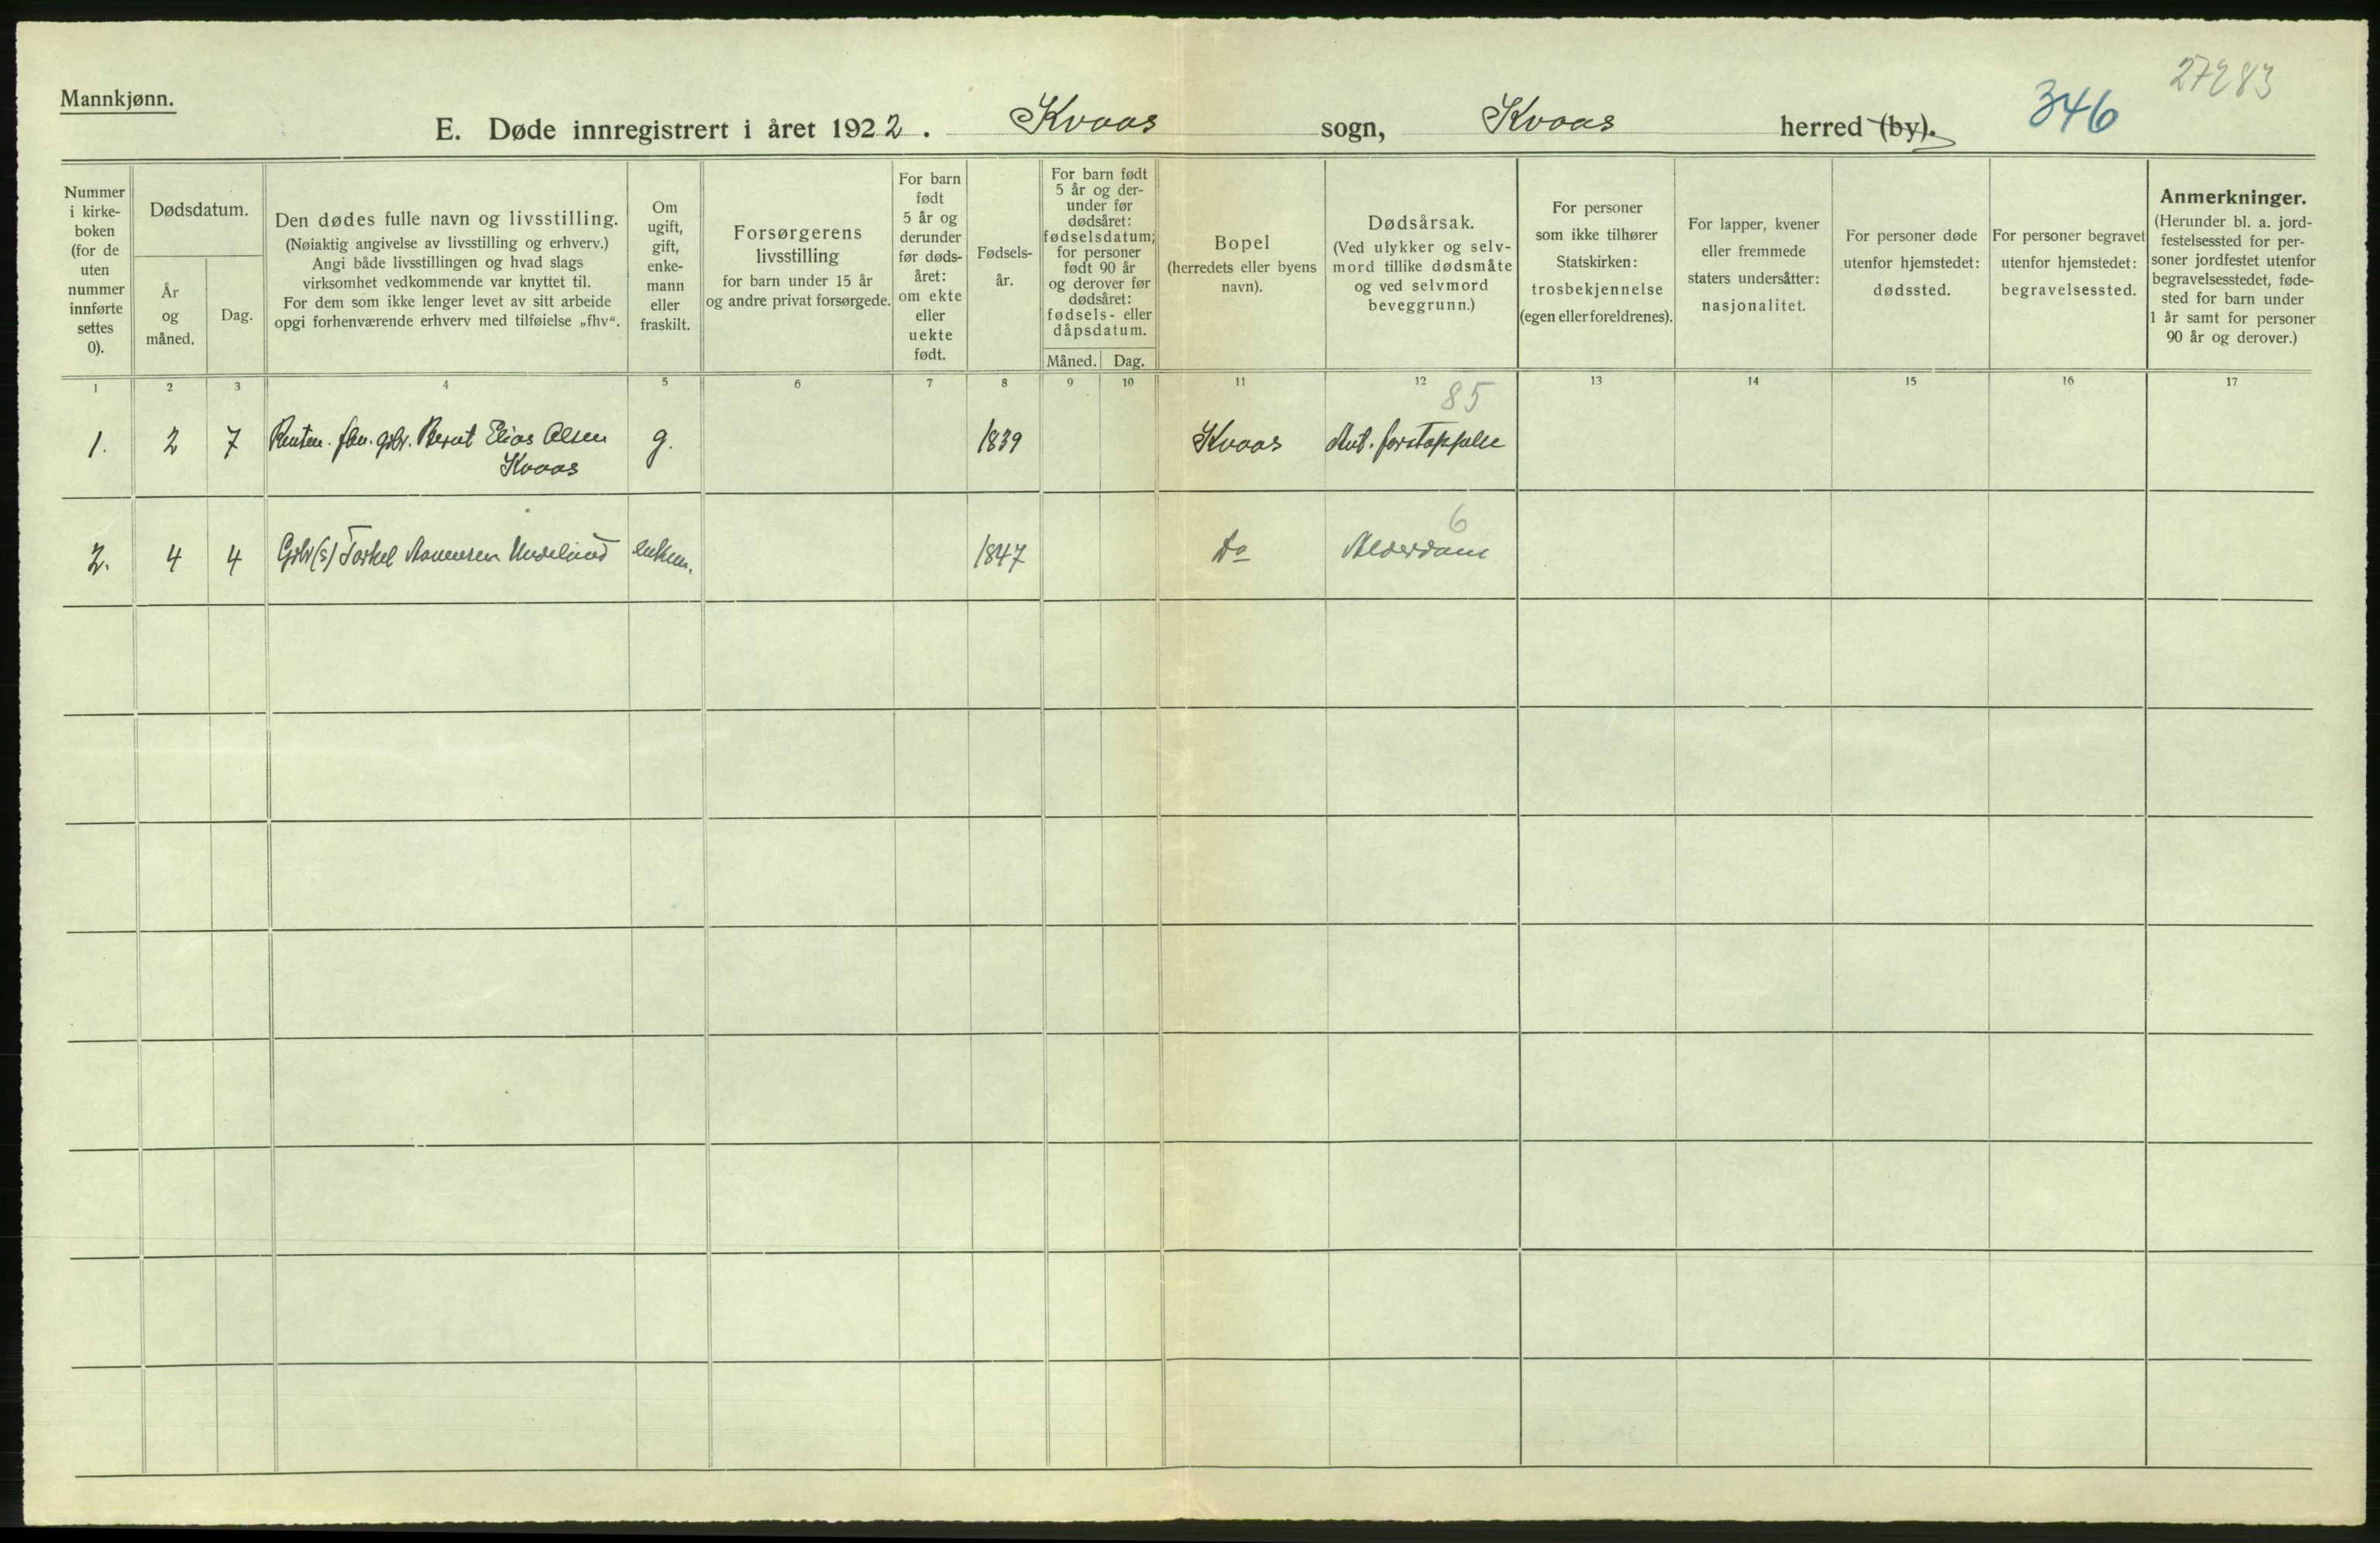 27283
346
Mannkjønn.
E. Døde innregistrert i året 1922. Kvaas sogn, Kvaas herred (by).
Nummer
i kirke-
boken
(for de
uten
nummer
innførte
settes
0).
Dødsdatum.
År
og
måned.
Dag.
Den dødes fulle navn og livsstilling.
(Nøiaktig angivelse av livsstilling og erhverv.)
Angi både livsstillingen og hvad slags
virksomhet vedkommende var knyttet til.
For dem som ikke lenger levet av sitt arbeide
opgi forhenværende erhverv med tilføielse „fhv“.
Om
ugift,
gift,
enke-
mann
eller
fraskilt.
Forsørgerens
livsstilling
for barn under 15 år
og andre privat forsørgede.
For barn
født
5 år og
derunder
før døds-
året:
om ekte
eller
uekte
født.
Fødsels-
år.
For barn født
5 år og der-
under før
dødsåret:
fødselsdatum;
for personer
født 90 år
og derover før
dødsåret:
fødsels- eller
dåpsdatum.
Måned. Dag.
Bopel
(herredets eller byens
navn).
Dødsårsak.
(Ved ulykker og selv-
mord tillike dødsmåte
og ved selvmord
beveggrunn.)
For personer
som ikke tilhører
Statskirken:
trosbekjennelse
(egen eller foreldrenes).
For lapper, kvener
eller fremmede
staters undersåtter:
nasjonalitet.
For personer døde
utenfor hjemstedet:
dødssted.
For personer begravet
utenfor hjemstedet:
begravelsessted.
Anmerkninger.
(Herunder bl. a. jord-
festelsessted for per-
soner jordfestet utenfor
begravelsesstedet, føde-
sted for barn under
1 år samt for personer
90 år og derover.)
1 2 3 4 5 6 7 8 9 10 11 12 13 14 15 16 17
85
1. 2 7 fhv. gbr. Bernt Elias Olsen g. 1839 Kvaas forstoppelse
Kvaas
6
2. 4 4 Gbr (s) Torkel Undelund enkem. 1847 Do Alderdom